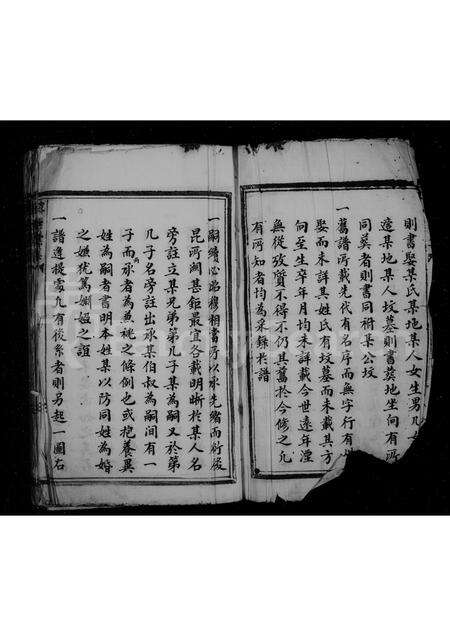 則書娶某氏某地某人女生男几女
遠某地某人坟墓則書葬地坐向有
同葬者則書同祔某公坟
一舊譜所載先代有名序而無字行有
娶而未詳其姓氏有坟墓而未載其方
向至生卒年月均未詳載今世遠年湮
無從攷質不得不仍其舊於今修之凡
有所知者均為采錄於譜
一嗣續必昭穆相當所以承先緒而衍後
昆所關甚鉅最宜各載明晰於某人名
旁註立某兄弟第几子某為嗣又於第
几子名旁註出承某伯叔為嗣間有一
子而承者為兼祧之條例也或抱養異
姓為嗣者書明本姓某以防同姓為婚
之嫌犹篤婣婭之誼
一譜遵提處凡有後系者則另起一圖右